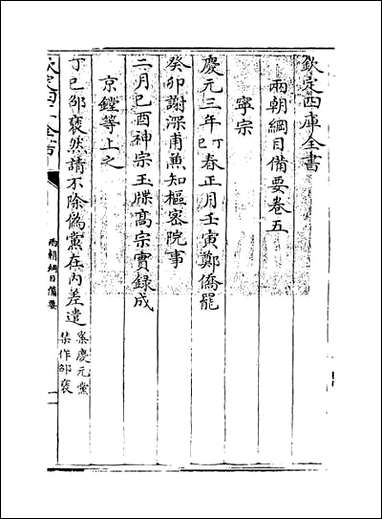 欽定四庫全書
兩朝綱目備要卷五
寧宗
慶元三年丁巳春正月壬寅鄭僑罷
癸卯謝深甫兼知樞密院事
二月己酉神宗玉牒高宗實録成
京鏜等上之
丁巳邵褒然請不除偽黨在內差遣案慶元黨禁作邵褒
欽定四庫全書
兩朝綱目備要
一